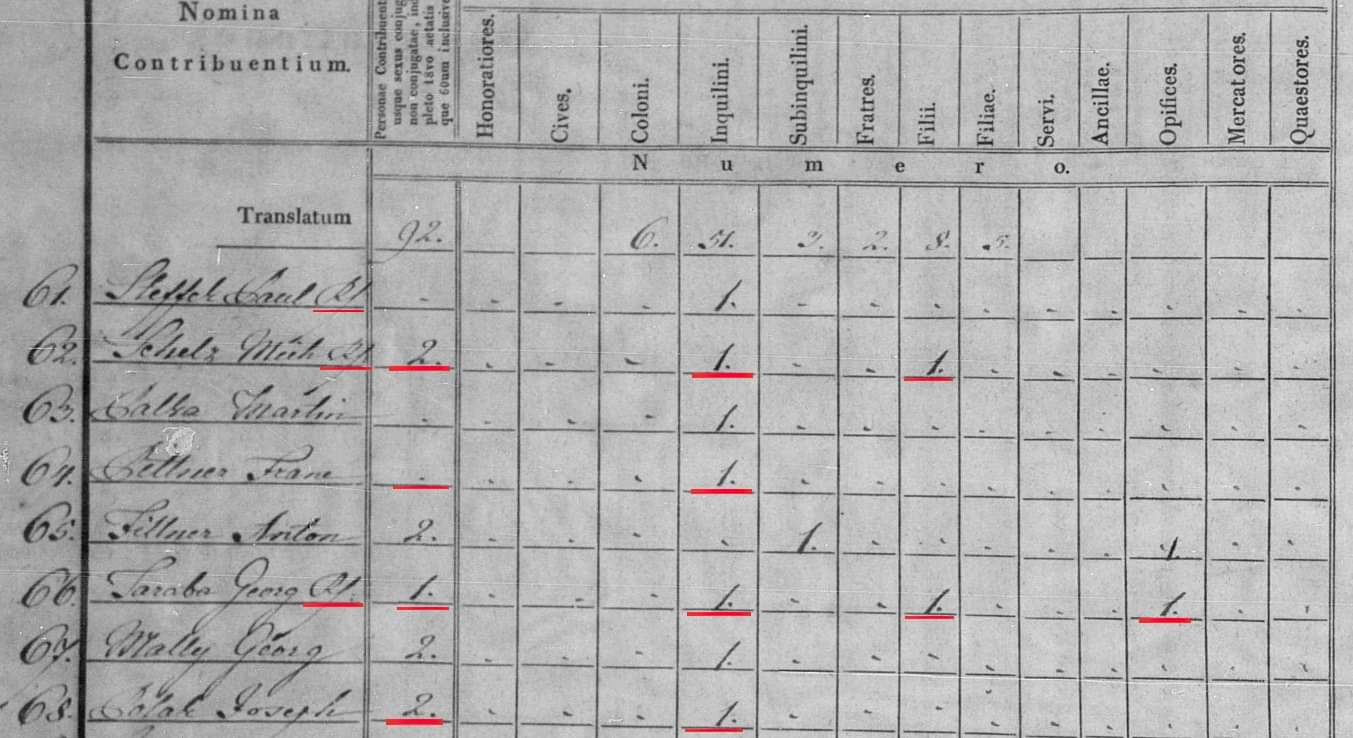 Nomina
Contribuentium.
Personae Contribuent
usque sexus conjug
non conjugatae, in
pleto 18vo aetatis
que 60um inclusive
Honoratiores.
Cives.
Coloni.
Inquilini.
Subinquilini.
Fratres.
Filii.
Filiae.
Servi.
Ancillae.
Opifices.
Mercatores.
Quaestores.
Numero.
Translatum 92. 6. 51. 3. 2. 8. 5.
61. Paul 1.
62. Scholz Mich 2. 1. 1.
63. Martin 1.
64. Franc 1.
65. Fillner Anton 2. 1. 1.
66. Taraba Georg 1. 1. 1. 1.
67. Mally Georg 2. 1.
68. Polak Joseph 2. 1.